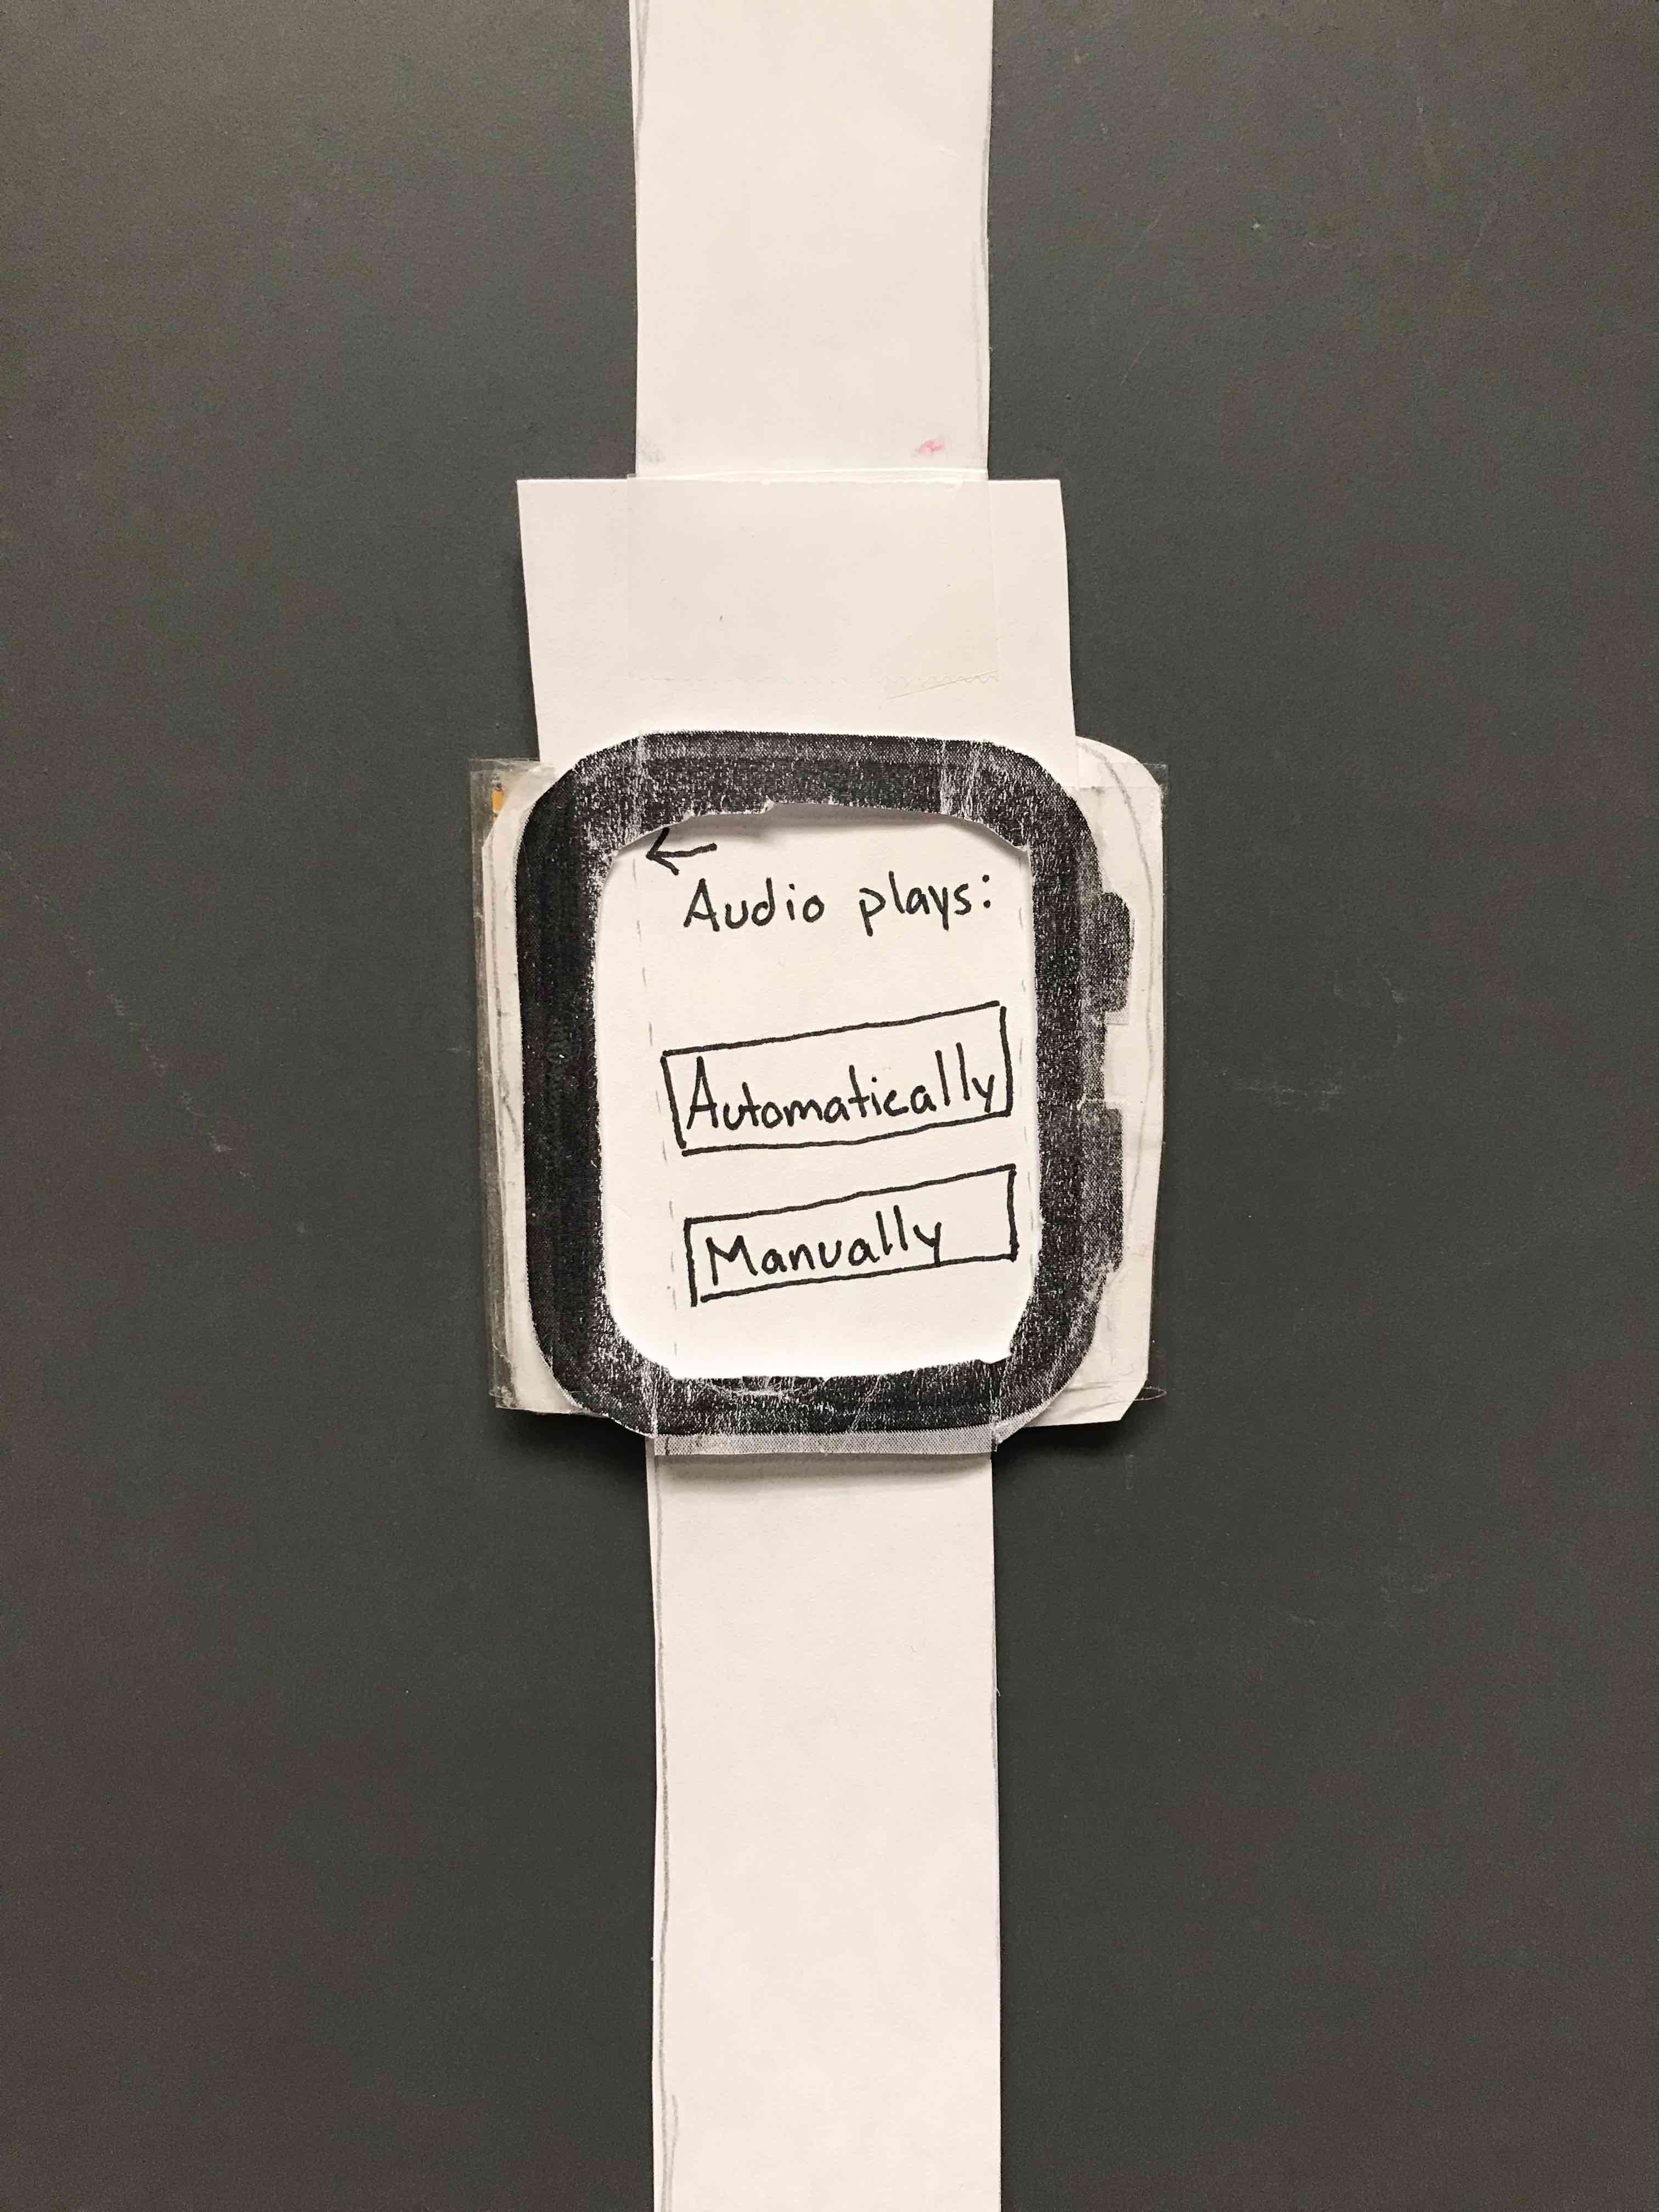 ←
Audio plays:
Automatically
Manually